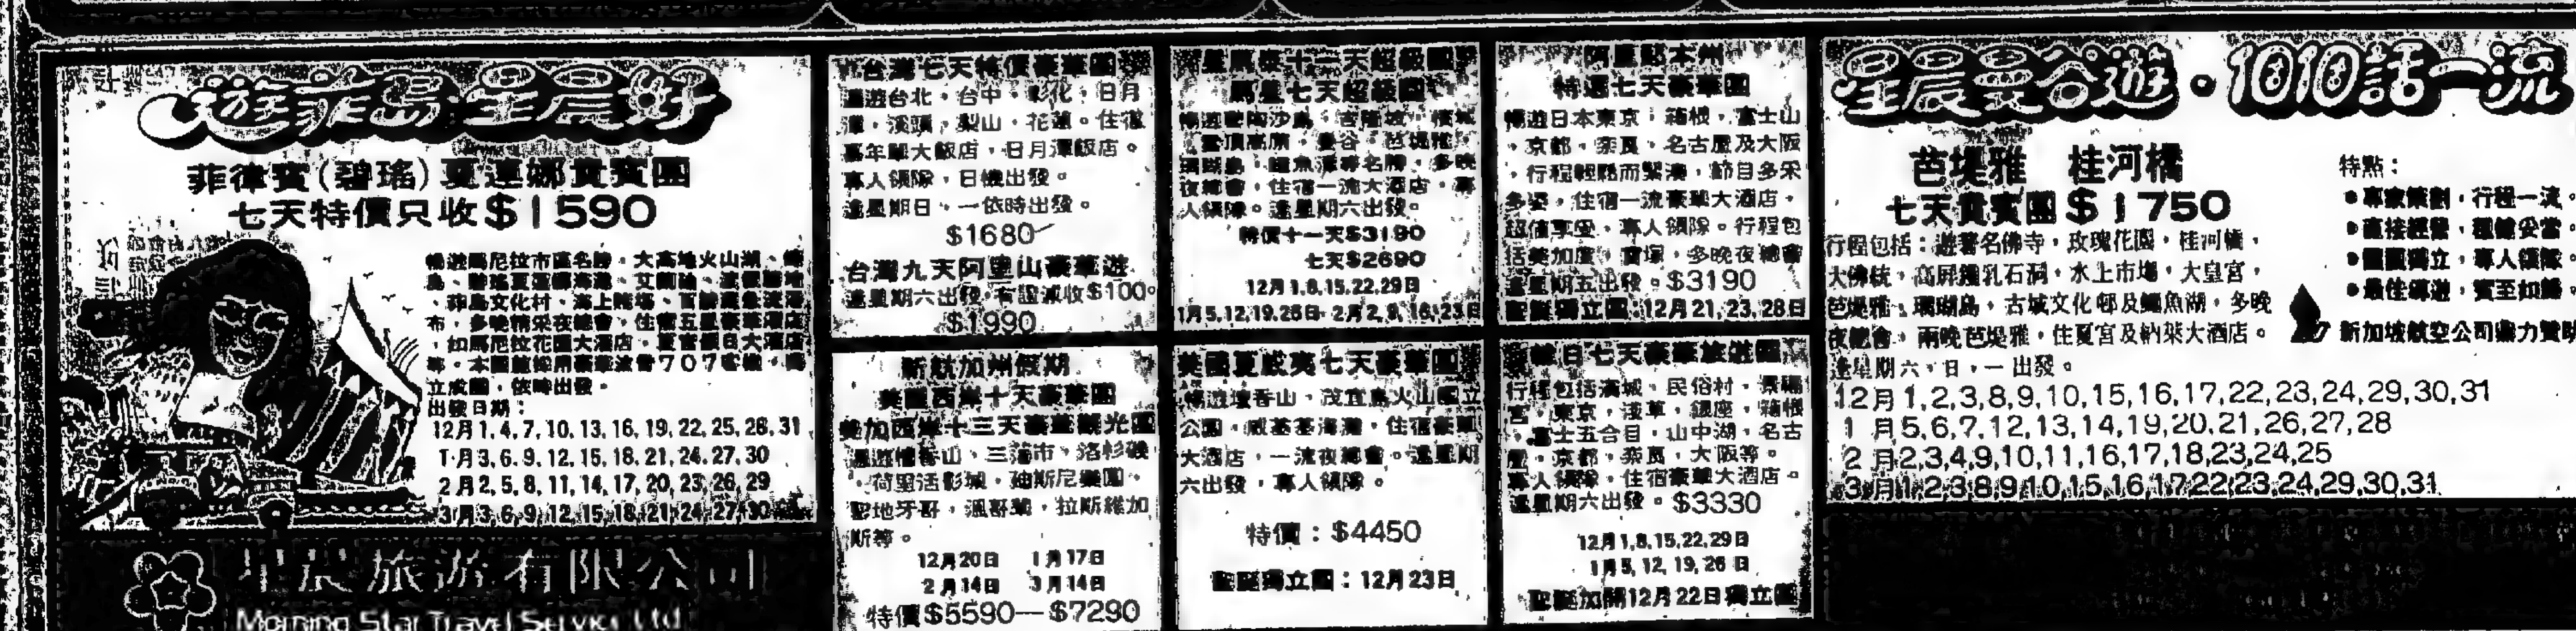 遊菲島·星晨好
菲律賓(碧瑤)夏連娜貴賓團
七天特價只收$1590
暢遊馬尼拉市區名勝、大高地火山湖、
島、碧瑤夏連娜海灘、
、菲島文化村、海上賭場、百勝灘急流瀑
布,多晚精采夜總會,住宿五星豪華酒店
,如馬尼拉花園大酒店、夏宮假日大酒店
等。本團均採用豪華波音707客機,獨
立成團,依時出發。
出發日期:
12月1,4,7,10,13,16,19,22,25,28,31
1月3,6,9,12,15,18,21,24,27,30
2月2,5,8,11,14,17,20,23,26,29
3月3,6,9,12,15,18,21,24,27,30
星晨旅游有限公司
Morning Star Travel Service Ltd
台灣七天特價豪華團
暢遊台北,台中,彰化,日月
潭,溪頭,梨山,花蓮。住宿
嘉年華大飯店,日月潭飯店。
專人領隊,日機出發。
逢星期日、一依時出發。
$1680
台灣九天阿里山豪華遊
逢星期六出發·有證減收$100。
$1990
新航加州假期
美國西岸十天豪華團
美加西岸十三天豪華觀光團
暢遊檀香山、三藩市、洛杉磯
、荷里活影城,迪斯尼樂園、
聖地牙哥,溫哥華,拉斯維加
斯等。
12月20日 1月17日
2月14日 3月14日
特價$5590—$7290
星馬泰十一天超級團
馬星七天超級團
暢遊聖陶沙島,吉隆坡,檳城
,雲頂高原,曼谷,芭堤雅,
珊瑚島,鱷魚潭等名勝,多晚
夜總會,住宿一流大酒店,專
人領隊。逢星期六出發。
特價十一天$3190
七天$2690
12月1,8,15,22,29日
1月5,12,19,26日 2月2,9,16,23日
美國夏威夷七天豪華團
暢遊檀香山,茂宜島火山國立
公園,威基基海灘,住宿豪華
大酒店,一流夜總會。逢星期
六出發,專人領隊。
特價:$4450
聖誕獨立團:12月23日
本州
特選七天豪華團
暢遊日本東京,箱根,富士山
,京都,奈良,名古屋及大阪
,行程輕鬆而緊湊,節目多采
多姿,住宿一流豪華大酒店,
超值享受,專人領隊。行程包
括美加廬,寶塚,多晚夜總會
逢星期五出發。$3190
聖誕獨立團:12月21,23,28日
韓日七天豪華旅遊團
行程包括漢城,民俗村,景福
宮,東京,淺草,銀座,箱根
,富士五合目,山中湖,名古
屋,京都,奈良,大阪等。
專人領隊,住宿豪華大酒店。
逢星期六出發。$3330
12月1,8,15,22,29日
1月5,12,19,26日
聖誕加開12月22日獨立團
星晨曼谷遊·1010話一流
芭堤雅 桂河橋
七天貴賓團$1750
行程包括:遊著名佛寺,玫瑰花園,桂河橋,
大佛統,高屏鐘乳石洞,水上市場,大皇宮,
芭堤雅、珊瑚島,古城文化邨及鱷魚湖,多晚
夜總會。兩晚芭堤雅,住夏宮及納萊大酒店。
逢星期六,日,一出發。
12月1,2,3,8,9,10,15,16,17,22,23,24,29,30,31
1月5,6,7,12,13,14,19,20,21,26,27,28
2月2,3,4,9,10,11,16,17,18,23,24,25
3月1,2,3,8,9,10,15,16,17,22,23,24,29,30,31
特點:
●專家策劃,行程一流。
●直接經營,穩健妥當。
●團團獨立,專人領隊。
●最佳導遊,賓至如歸。
新加坡航空公司鼎力贊助